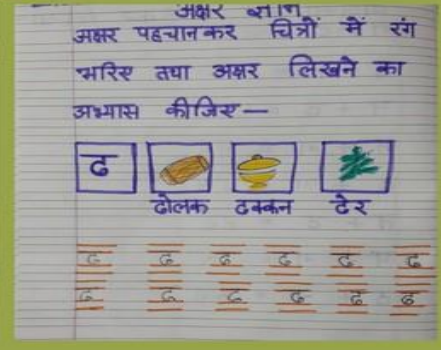 अक्षर ज्ञान
अक्षर पहचानकर चित्रों में रंग
भरिए तथा अक्षर लिखने का
अभ्यास कीजिए—
ढ
ढोलक ढक्कन ढेर
ढ ढ ढ ढ ढ ढ
ढ ढ ढ ढ ढ ढ